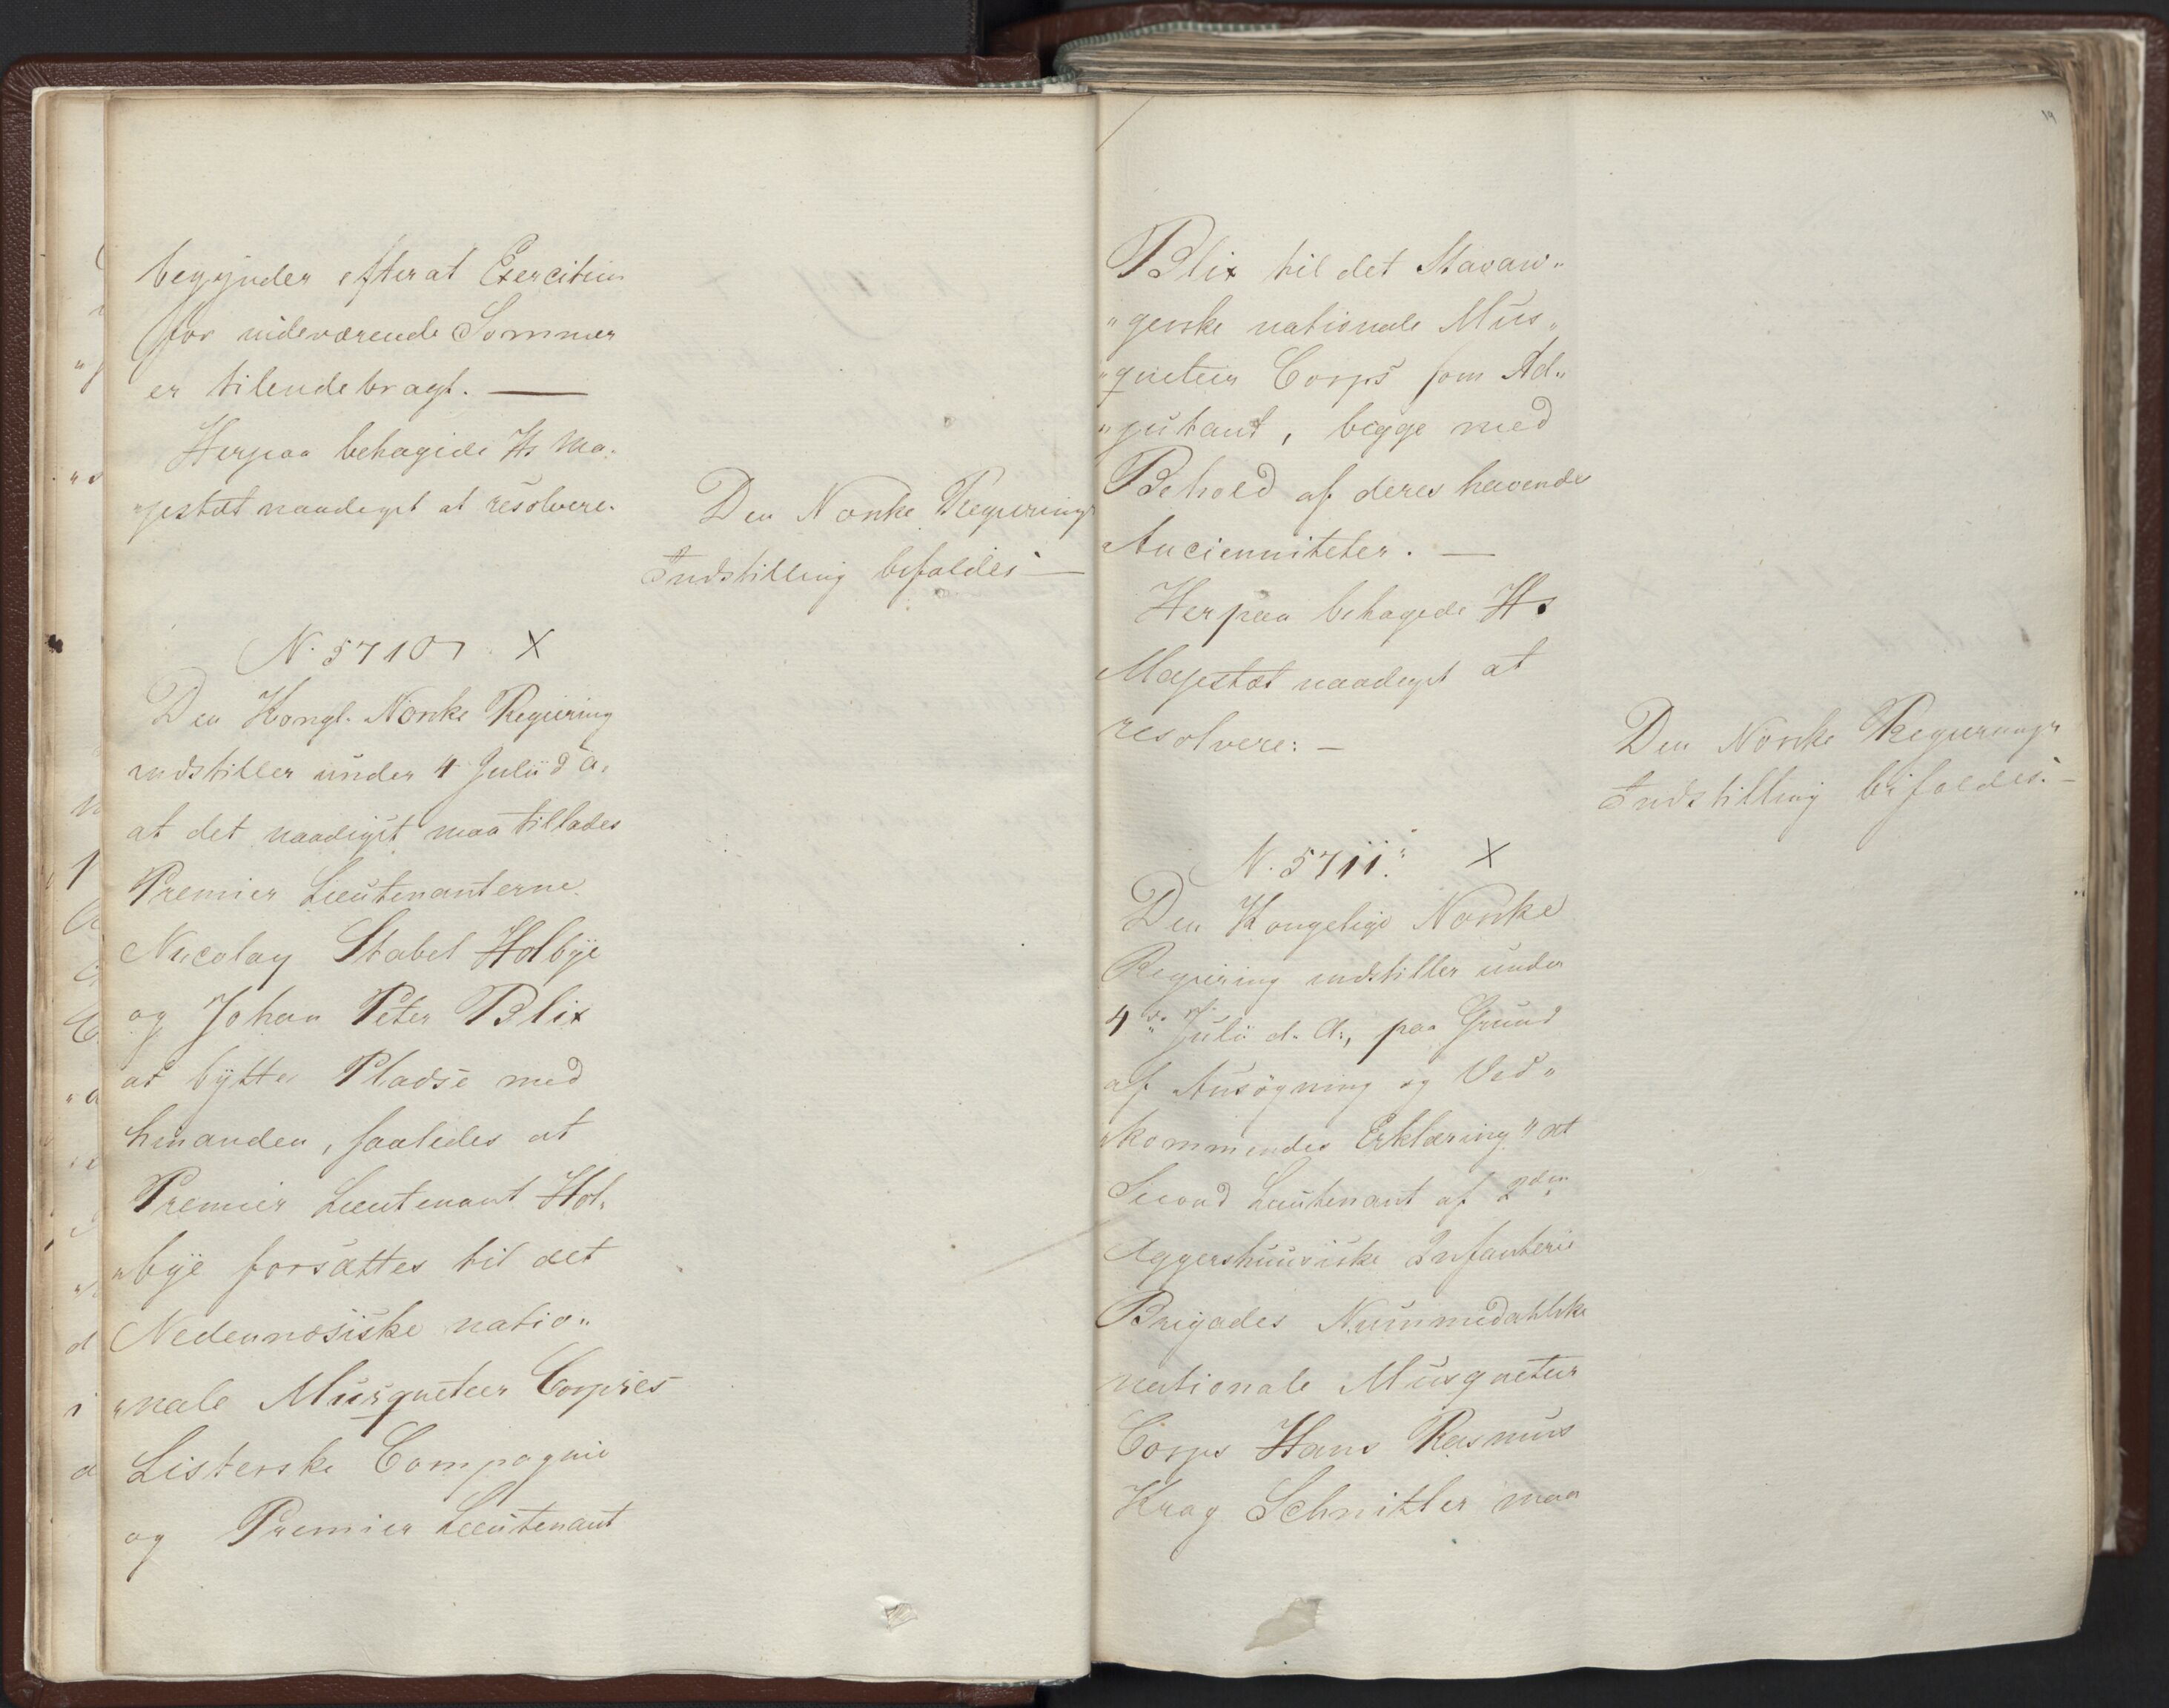 begynder efterat Exercitien
for nideværende Sommer
er tilendebragt. —
Herpaa behagede Hs Ma„
„jestæt naadigst at resolvere.
Den Norske Regierings
Indstilling bifaldes —
N. 5710 X
Den Kongl. Norske Regiering
indstiller under 4 Julii d A.
at det naadigst maa tillades
Premier Lieutenanterne
Nicolay Stabel Holbye
og Johan Peter Blix
at bytte Pladse med
hinanden, saaledes at
Premier Lieutenant Hol„
„bye forsættes til det
Nedennæsiske natio„
„nale Musqueteer Corpses
Listerske Compagnie
og Premier Lieutenant
19
Blix til det Stavan„
„gerske nationale Mus„
„queteer Corps som Ad„
„jutant, begge med
Behold af deres havende
Ancienniteter. —
Herpaa behagede Hs
Majestæt naadigst at
resolvere: —
Den Norske Regierings
Indstilling bifaldes. —
N. 5711. X
Den Kongelige Norske
Regiering indstiller under
4 Julii d. A:, paa Grund
af Ansøgning og Ved„
„kommendes Erklæring „at
Second Lieutenant af 2den
Aggershuusiske Infanterie
Brigades Nummedahlske
nationale Musqueteer
Corps Hans Rasmus
Krag Schnitler maa